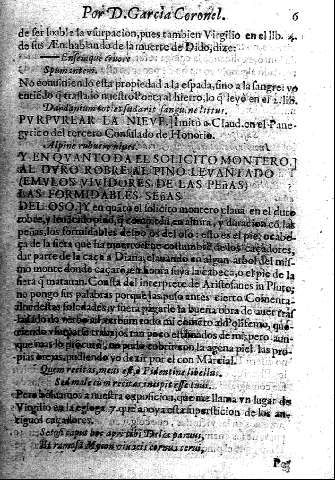 Por D. Garcia Coronel. 6
de ser loable la vsurpacion, pues tambien Virgilio en el lib. 4.
de sus Æn. hablando de la muerte de Dido, dize:
Ensemque cruore
Spumantem.
No consintiendo esta propiedad a la espada, sino a la sangre: yo
entiendo q̃ traslado nuestro Poeta al hierro, lo q̃ leyò en el 2. lib.
PVRPVREAR LA NIEVE.] Imitò a Claud. en el Pane-
gyrico del tercero Consulado de Honorio.
Alpinæ rubuere niues.
Y EN QVANTO DA EL SOLICITO MONTERO,]
AL DVRO ROBRE AL PINO LEVANTADO
(EMVLOS VIVIDORES DE LAS PEñAS)
LAS FORMIDABLES SEñAS
DEL OSO.] Y en quãto el solicito montero claua en el duro
robre, y leuãtado pino,
peñas, las formidables señas del oso: esto es el pie, o cabe-
ça de la fiera que ha muerto. Fue costumbre de los caçadores,
dar parte de la caça a Diana, clauando en algun arbol del mis-
mo monte donde caçarẽ, en honra suya la cabeça, o el pie de la
fiera q̃ matauan. Consta del interprete de Aristofanes in Pluto,
no pongo sus palabras porque las puso antes cierto Comenta-
dor destas soledades, y fuera pagarle la buena obra de auer tras-
ladado de verbo ad verbum todo mi comento al Polifemo,
propias obras, pudiendo yo dezir por el con Marcial.
Quem recitas, meus est, o Fidentine libellus.
Sed male cum recitas incipit esse tuus.
Pero boluamos a nuestra exposicion, que me llama vn lugar de
Virgilio en la egloga 7. que apoya esta supersticion de los an-
tiguos caçadores.
Setosi caput hoc apri tibi Delia paruus,
Et ramosa Mycon viuacis cornua cerui,